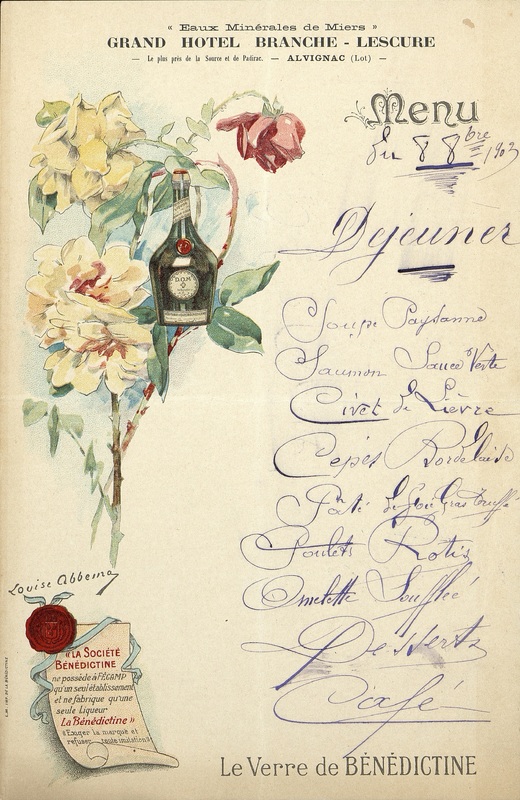 « Eaux Minérales de Miers »
GRAND HOTEL BRANCHE - LESCURE
— Le plus près de la Source et de Padirac. — ALVIGNAC (Lot) —
Menu
du 8 8bre 1903
Déjeuner
Soupe Paysanne
Saumon Sauce Verte
Civet de Lièvre
Cèpes Bordelaise
Pâté de foie Gras truffé
Poulets Rotis
Omelette Soufflée
Desserts
Café
Louise Abbema
« LA SOCIÉTÉ
BÉNÉDICTINE
ne possède à FÉCAMP
qu'un seul établissement
et ne fabrique qu'une
seule Liqueur
La Bénédictine »
« Exiger la marque et
refuser toute imitation »
Le Verre de BÉNÉDICTINE